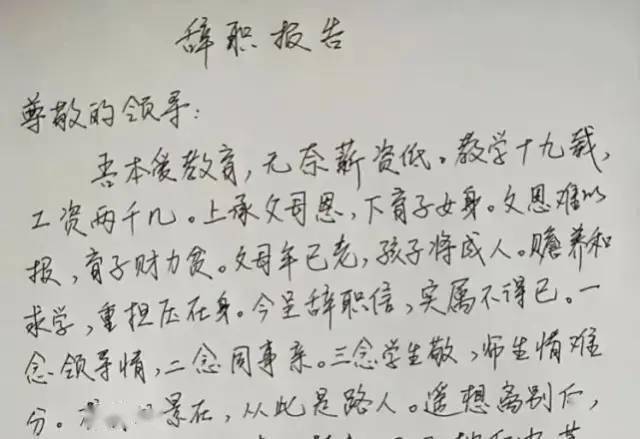 辞职报告
尊敬的领导:
吾本爱教育,无奈薪资低。教学十九载,
工资两千几。上承父母恩,下育子女身。父恩难以
报,育子财力贫。父母年已老,孩子将成人。赡养和
求学,重担压在身。今呈辞职信,实属不得已。一
念领导情,二念同事亲。三念学生敬,师生情难
分。景在,从此是路人。遥想离别后,